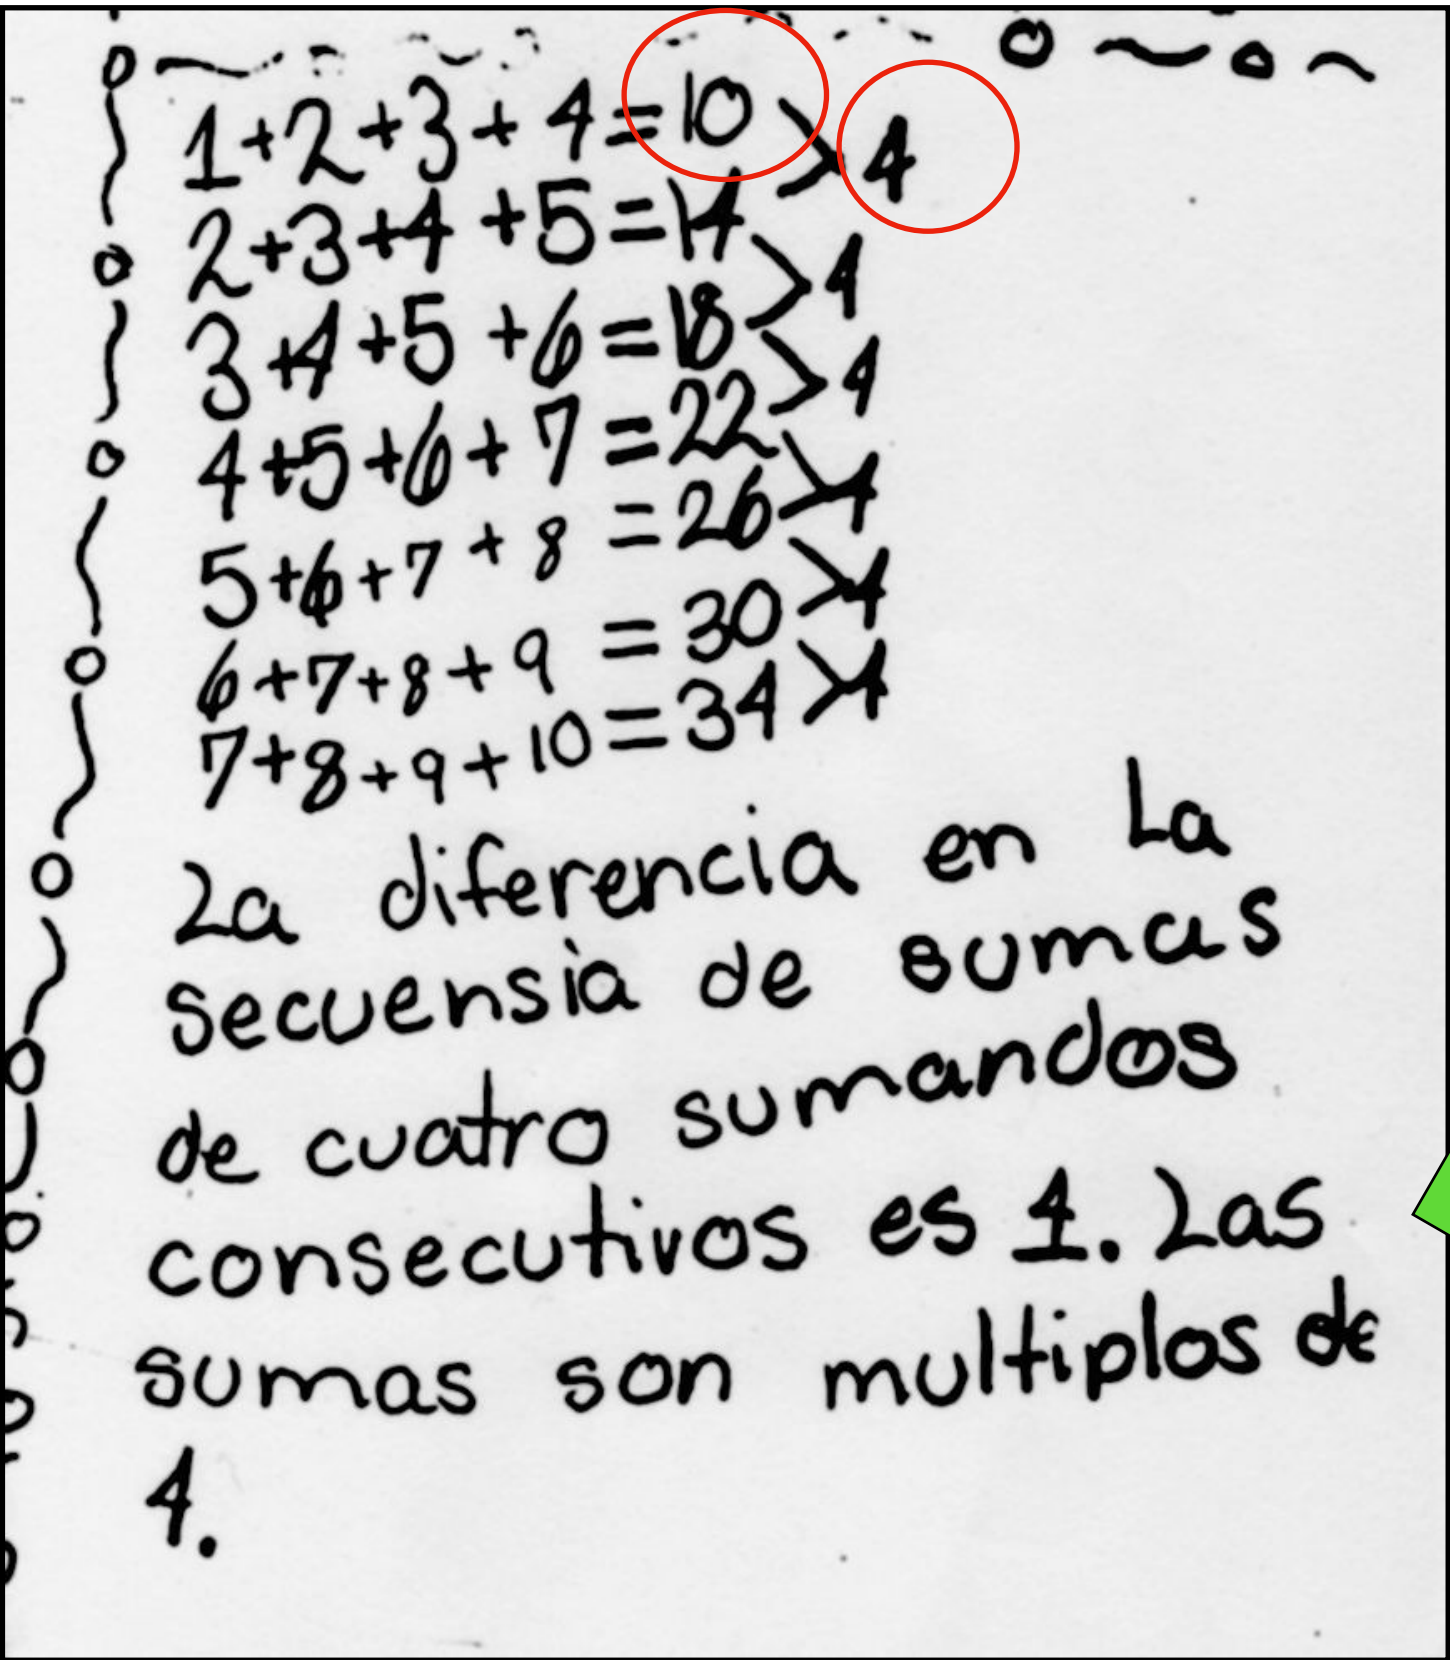 1+2+3+4=10 >4
2+3+4+5=14 >4
3+4+5+6=18 >4
4+5+6+7=22 >4
5+6+7+8=26 >4
6+7+8+9=30 >4
7+8+9+10=34
La diferencia en La
secuensia de sumas
de cuatro sumandos
consecutivos es 4. Las
sumas son multiplos de
4.